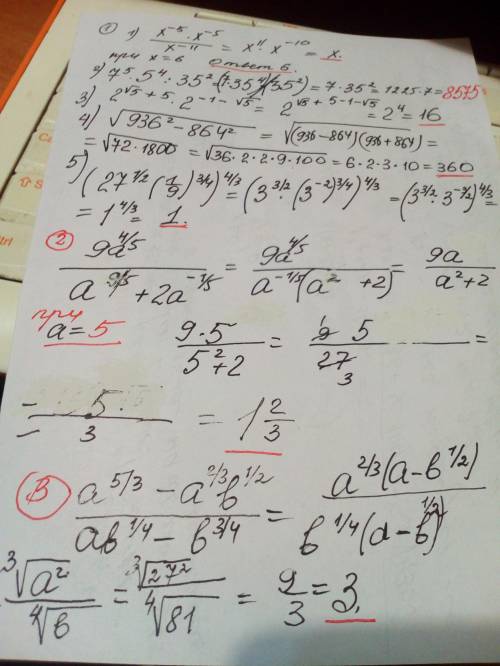 ① 1) x⁻⁵ · x⁻⁵ / x⁻¹¹ = x¹¹ · x⁻¹⁰ = x.
при x = 6 Ответ 6.
2) 7⁵ · 5⁴ : 35² = (7·35⁴/35²) = 7 · 35² = 1225·7 = 8575
3) 2^(√5 + 5) · 2^(-1-√5) = 2^(√5 + 5 - 1 - √5) = 2⁴ = 16
4) √(936² - 864²) = √((936 - 864)(936 + 864)) =
= √(72 · 1800) = √(36 · 2 · 2 · 9 · 100) = 6 · 2 · 3 · 10 = 360
5) (27^(1/2) · (1/9)^(3/4))^(4/3) = (3^(3/2) · (3⁻²)^(3/4))^(4/3) = (3^(3/2) · 3^(-3/2))^(4/3) =
= 1^(4/3) = 1.
② 9a^(4/5) / (a^(9/5) + 2a^(-1/5)) = 9a^(4/5) / (a^(-1/5)(a² + 2)) = 9a / (a² + 2)
при
a = 5 9·5 / (5² + 2) = 9 5 / 27 3 =
= 5 / 3 = 1 2/3
В (a^(5/3) - a^(2/3) b^(1/2)) / (ab^(1/4) - b^(3/4)) = a^(2/3)(a - b^(1/2)) / (b^(1/4)(a - b^(1/2)))
∛a² / ∜b = ∛27² / ∜81 = 9/3 = 3.